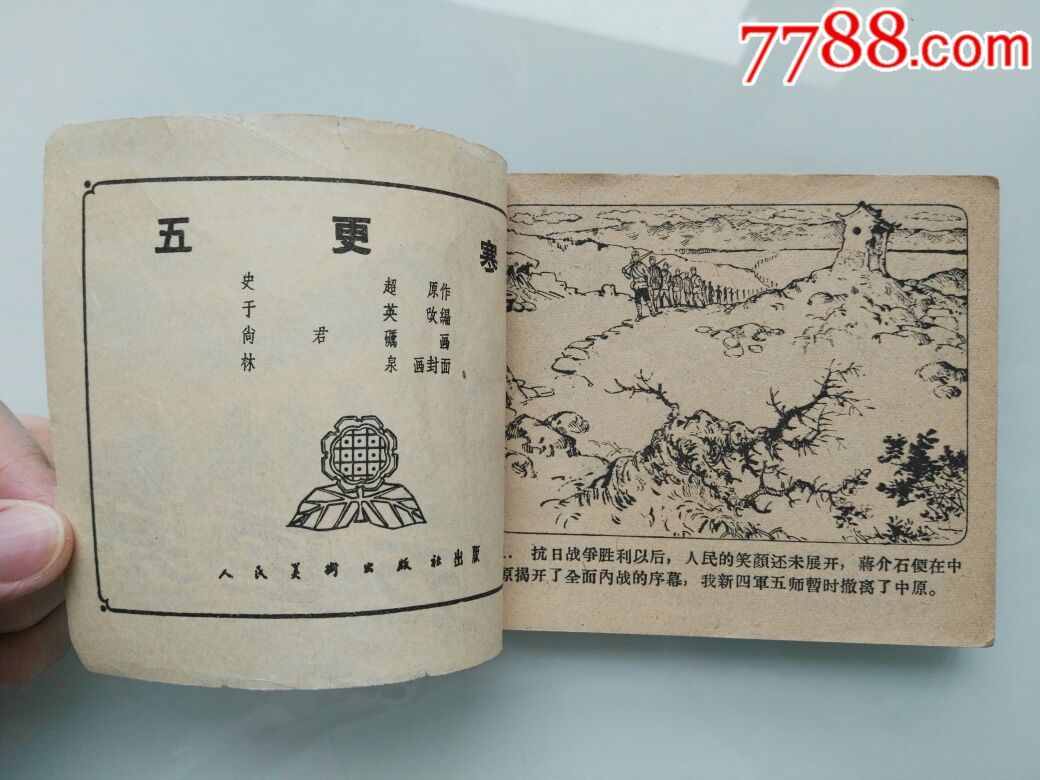 7788.com
五 更 寒
史 超 原作
于 英 改編
尙 君 礪 画
林 泉 画封面
人民美術出版社出版
1. 抗日战爭胜利以后，人民的笑顏还未展开，蔣介石便在中
原揭开了全面內战的序幕，我新四軍五师暫时撤离了中原。